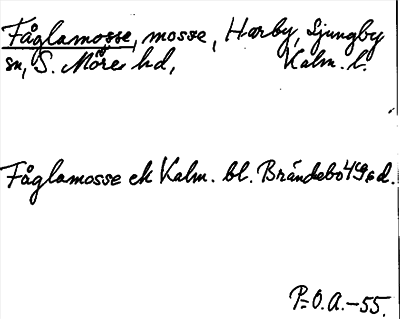 Fåglamosse, mosse, Harby, Ljungby
sn, S. Möre hd, Kalm. l.
Fåglamosse ek Kalm. bl. Brändebo 49 d.
P-O. A. -55.